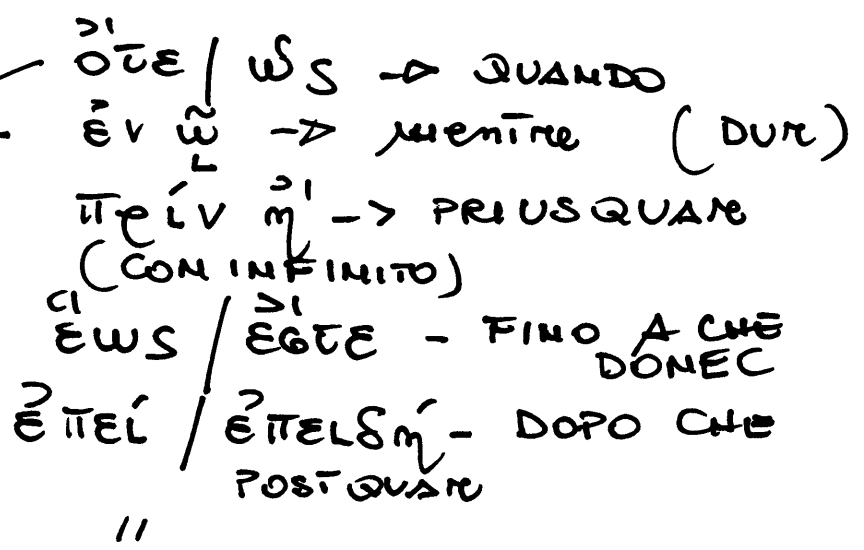 ὄτε / ὡς → QUANDO
ἐν ᾧ → mentre (DUR)
πρίν ἤ -> PRIUSQUAM
(CON INFINITO)
ἕως / ἔστε - FINO A CHE
DONEC
ἐπεί / ἐπειδή - DOPO CHE
POSTQUAM
"